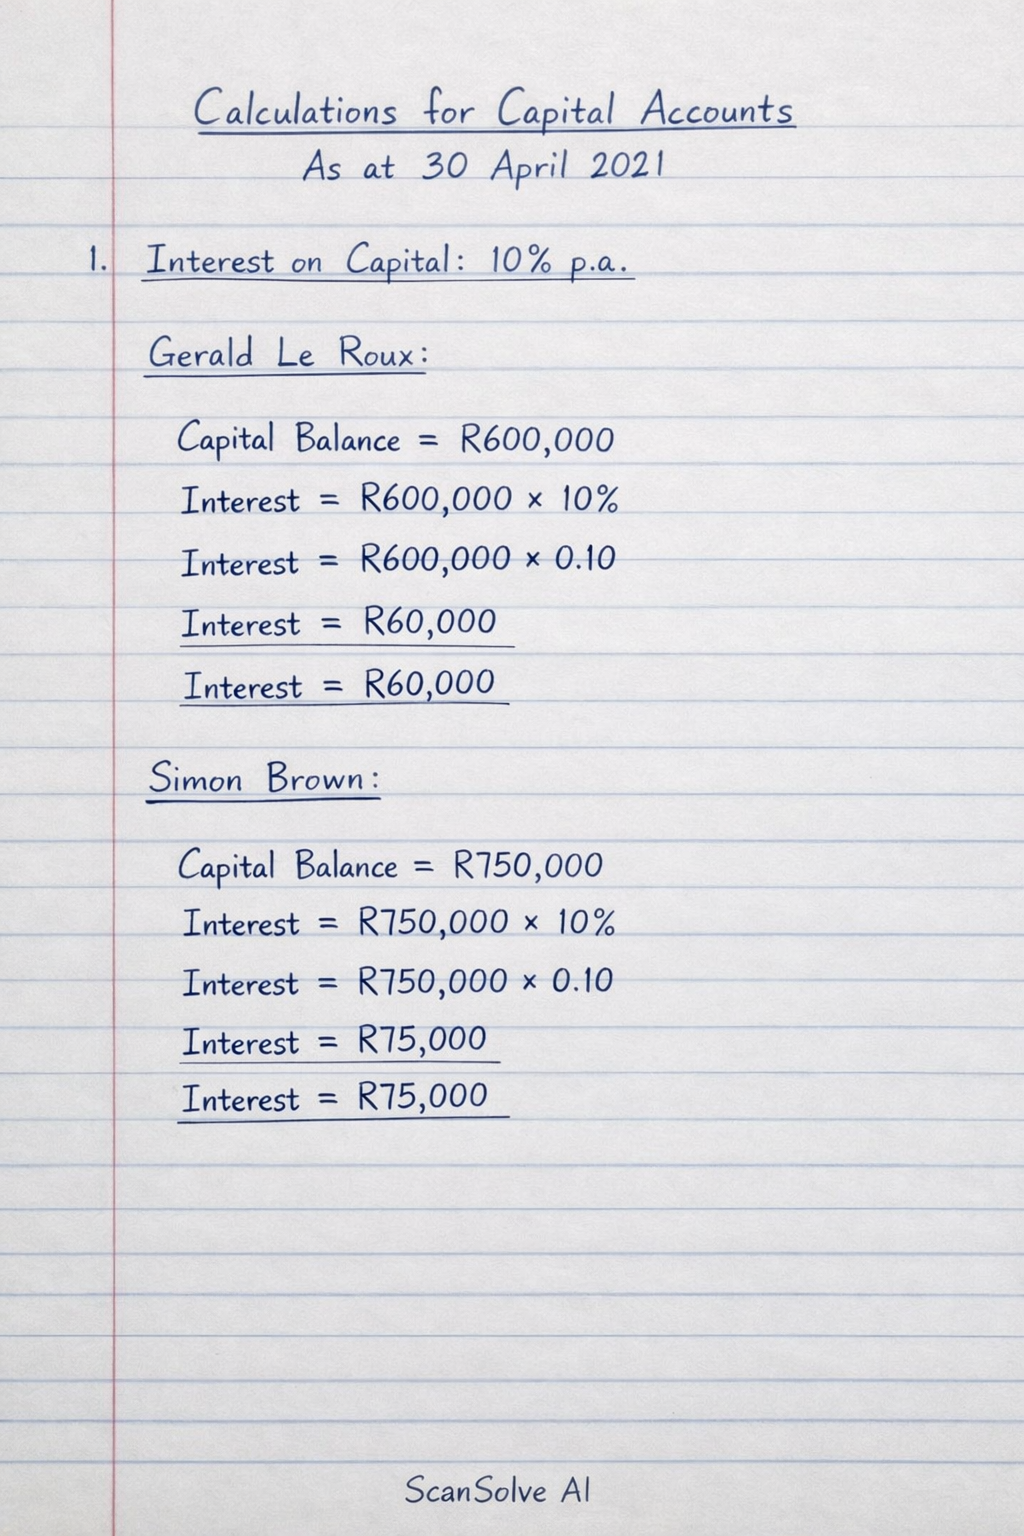 Calculations for Capital Accounts
As at 30 April 2021
1. Interest on Capital: 10% p.a.
Gerald Le Roux:
Capital Balance = R600,000
Interest = R600,000 × 10%
Interest = R600,000 × 0.10
Interest = R60,000
Interest = R60,000
Simon Brown:
Capital Balance = R750,000
Interest = R750,000 × 10%
Interest = R750,000 × 0.10
Interest = R75,000
Interest = R75,000
ScanSolve AI